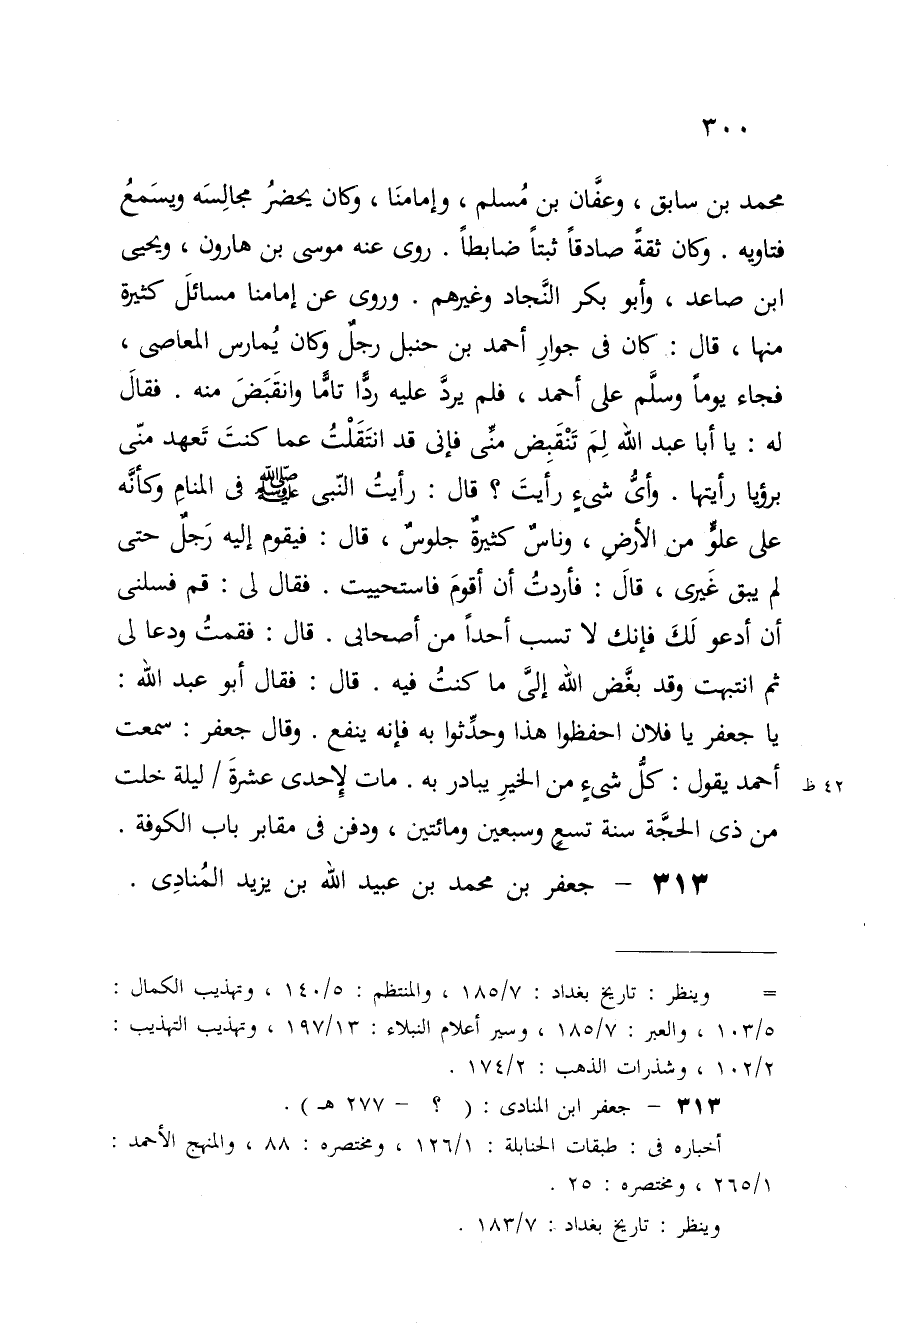 ٣٠٠
محمد بن سابق ، وعفَّان بن مُسلم ، وإمامنَا ، وكان يحضرُ مجالِسَه ويسَمعُ
فتاويه . وكان ثقةً صادقاً ثبتاً ضابطاً . روى عنه موسى بن هارون ، ويحيى
ابن صاعد ، وأبو بكر النَّجاد وغيرهم . وروى عن إمامنا مسائلَ كثيرة
منها ، قال : كان فى جوارِ أحمد بن حنبل رجلٌ وكان يُمارس المعاصى ،
فجاء يوماً وسلَّم على أحمد ، فلم يردَّ عليه ردًّا تامًّا وانقَبَضَ منه . فقالَ
له : يا أبا عبد الله لِمَ تَنْقَبِض منِّى فإنى قد انتَقَلْتُ عما كنتَ تَعهد منّى
برؤيا رأيتها . وأىُّ شىءٍ رأيتَ ؟ قال : رأيتُ النّبى ﷺ فى المنامِ وكأنَّه
على علوٍّ من الأرضِ ، وناسٌ كثيرةٌ جلوسٌ ، قال : فيقوم إليه رَجلٌ حتى
لم يبق غَيرى ، قالَ : فأردتُ أن أقومَ فاستحييت . فقال لى : قم فسلنى
أن أدعو لَكَ فإنك لا تسب أحداً من أصحابى . قال : فقمتُ ودعا لى
ثم انتبهت وقد بغَّض الله إلىَّ ما كنتُ فيه . قال : فقال أبو عبد الله :
يا جعفر يا فلان احفظوا هذا وحدِّثوا به فإنه ينفع . وقال جعفر : سمعت
أحمد يقول : كلُّ شىءٍ من الخيرِ يبادر به . مات لإحدى عشرةَ / ليلة خلت ٤٢ ظ
من ذى الحجَّة سنة تسعٍ وسبعين ومائتين ، ودفن فى مقابر باب الكوفة .
٣١٣ – جعفر بن محمد بن عبيد الله بن يزيد المُنادِى .
= وينظر : تاريخ بغداد : ١٨٥/٧ ، والمنتظم : ١٤٠/٥ ، وتهذيب الكمال :
١٠٣/٥ ، والعبر : ١٨٥/٧ ، وسير أعلام النبلاء : ١٩٧/١٣ ، وتهذيب التهذيب :
١٠٢/٢ ، وشذرات الذهب : ١٧٤/٢ .
٣١٣ – جعفر ابن المنادى : ( ؟ – ٢٧٧ هـ ) .
أخباره فى : طبقات الحنابلة : ١٢٦/١ ، ومختصره : ٨٨ ، والمنهج الأحمد :
٢٦٥/١ ، ومختصره : ٢٥ .
وينظر : تاريخ بغداد : ١٨٣/٧ .